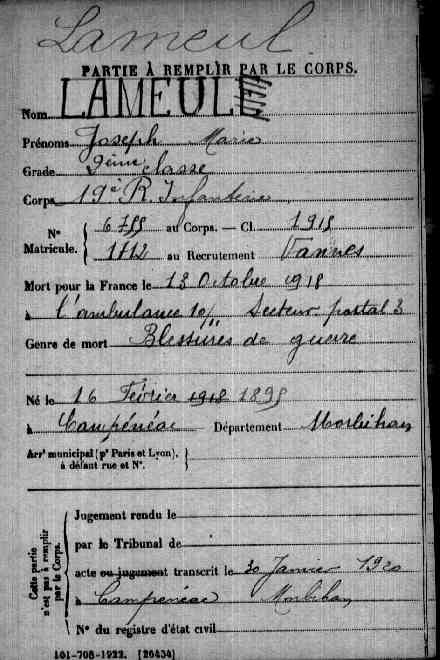 Lameul.
PARTIE À REMPLIR PAR LE CORPS.
Nom LAMEUL
Prénoms Joseph Marie
Grade 2ème classe
Corps 19e R. Infanterie
N° Matricule. { 6755 au Corps. — Cl. 1915
1712 au Recrutement Vannes
Mort pour la France le 13 Octobre 1918
à l'ambulance 10/ Secteur postal 3
Genre de mort Blessures de guerre
Né le 16 Février 1918 1895
à Campénéac Département Morbihan
Arr¹ municipal (p' Paris et Lyon), à défaut rue et N°. {
Cette partie n'est pas à remplir par le Corps. {
Jugement rendu le
par le Tribunal de
acte ou jugement transcrit le 30 Janvier 1920
à Campénéac Morbihan
N° du registre d'état civil
101-708-1922. [26434]